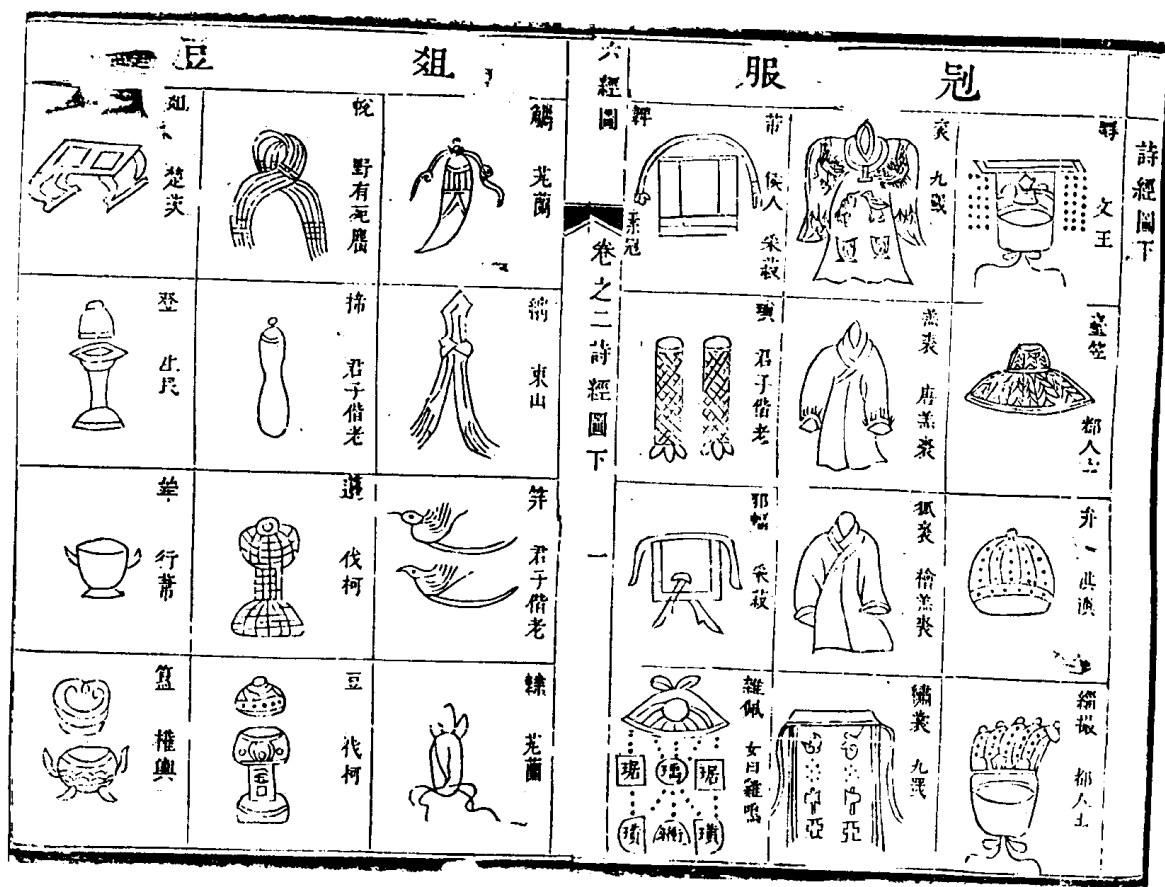 詩經圖下
冠服
冔 文王
臺笠 都人士
弁 淇澳
緇撮 都人士
袞 九罭
羔裘 唐羔裘
狐裘 檜羔裘
繡裳 九罭
芾 侯人 采菽
韠 素冠
瑱 君子偕老
邪幅 采菽
雜佩 女曰雞鳴
琚
瑀
琚
璜
衝
璜
六經圖
卷之二詩經圖下
一
俎豆
觿 芄蘭
縭 東山
笄 君子偕老
韘 芄蘭
帨 野有死麕
揥 君子偕老
籩 伐柯
豆 伐柯
俎 楚茨
登 生民
斝 行葦
簋 權輿